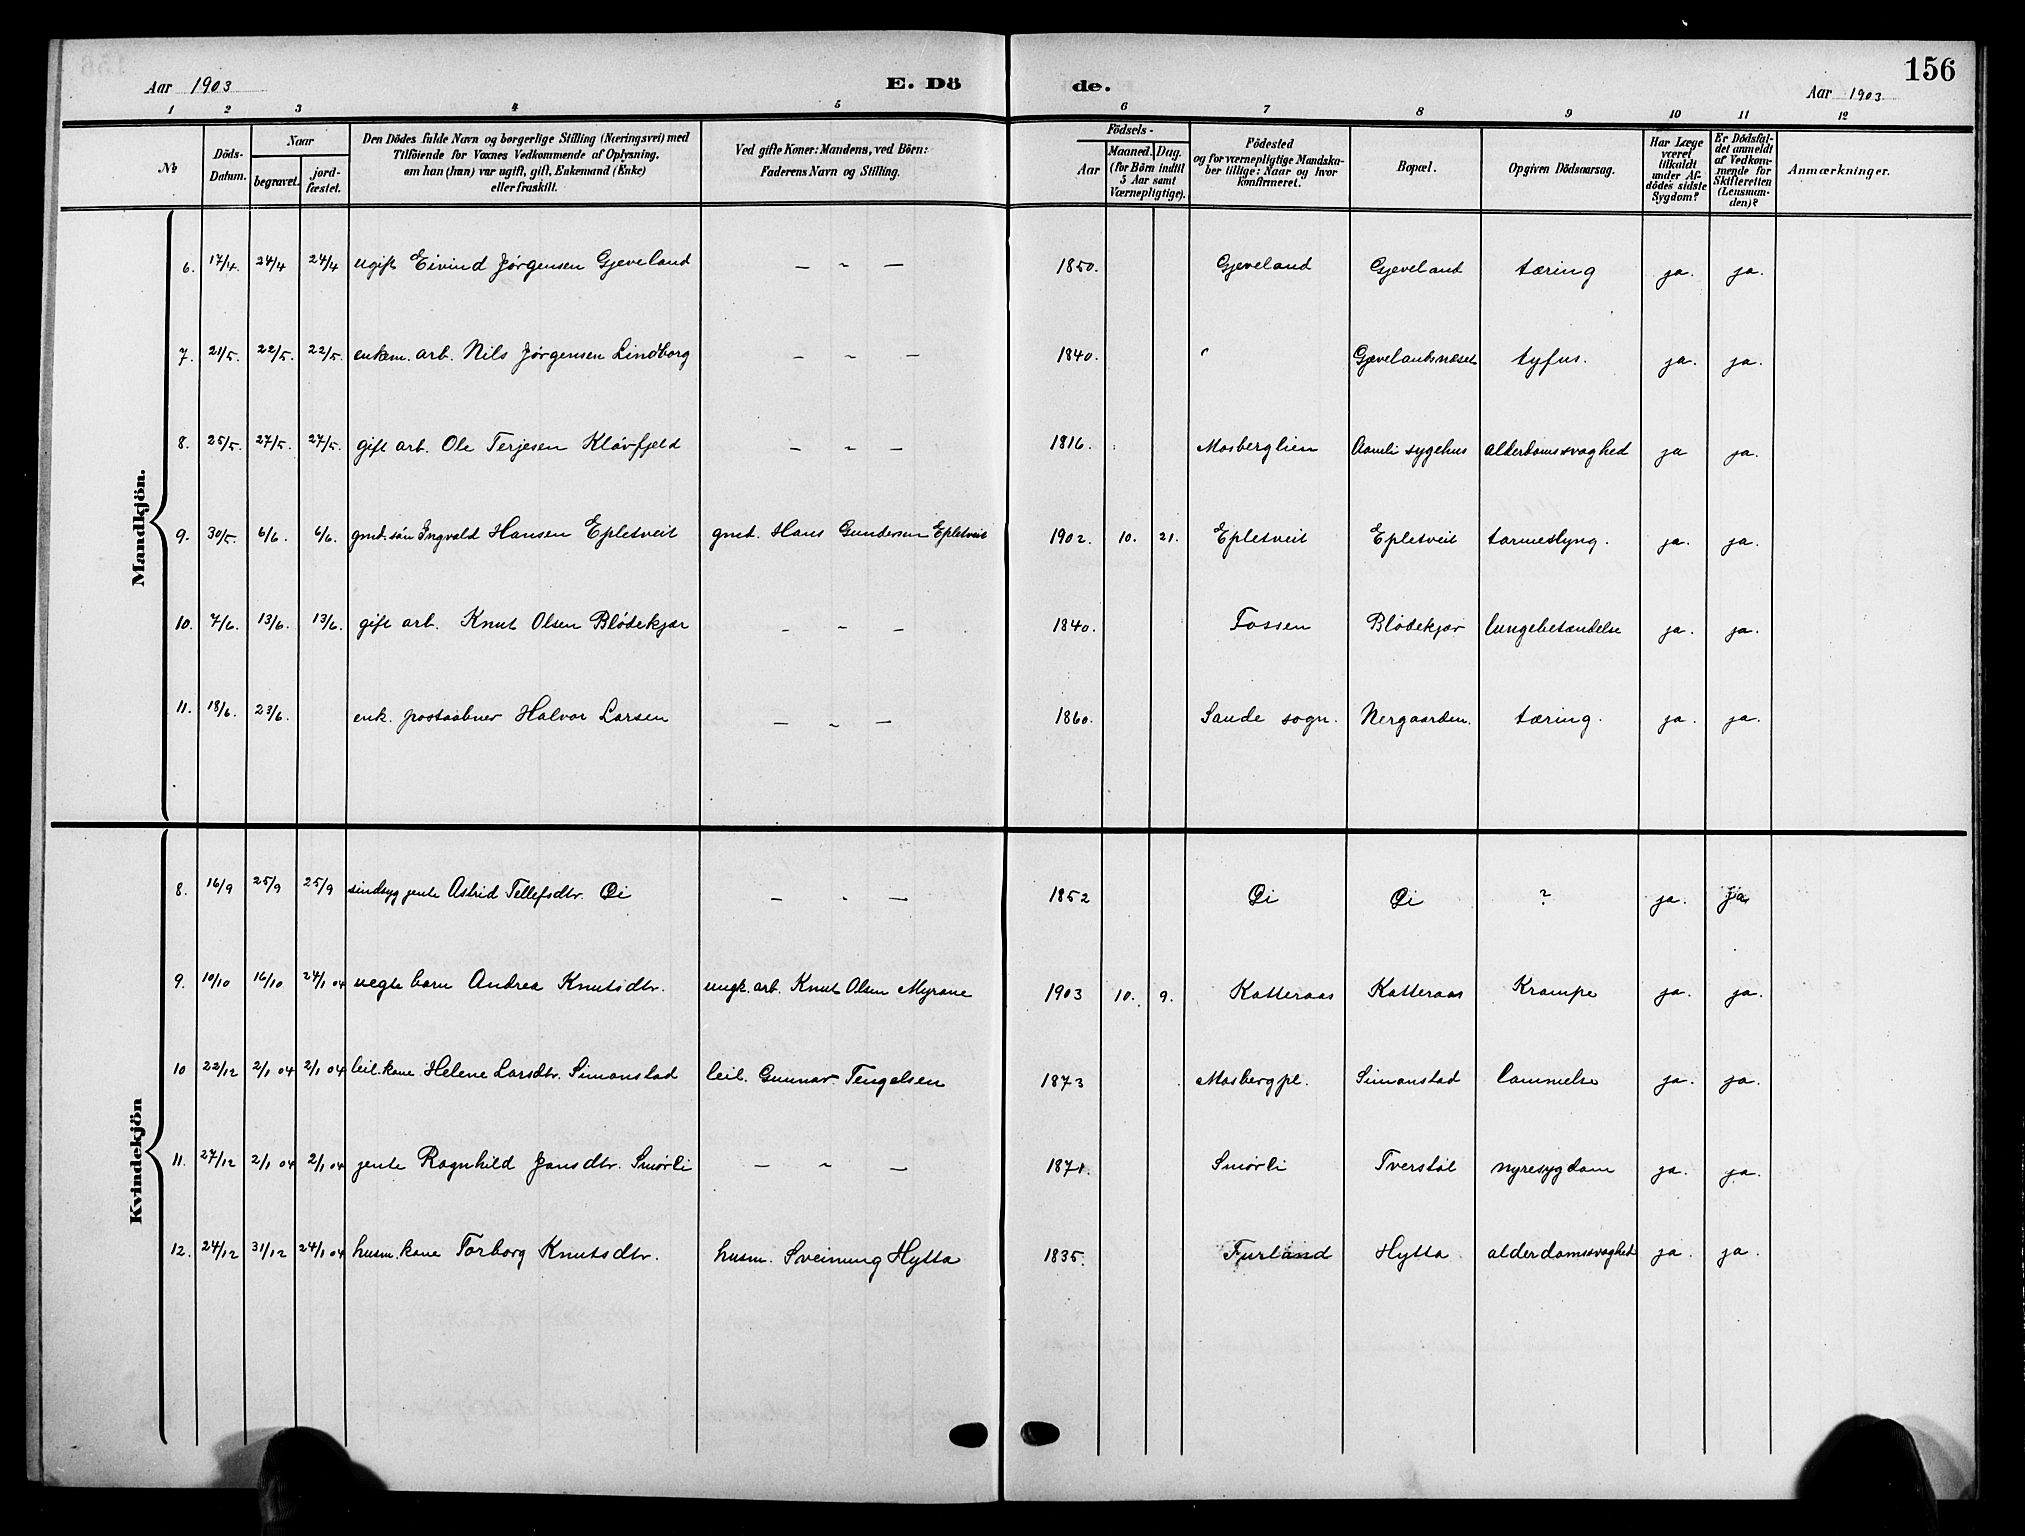 156
Aar 1903
E. Dö
de.
Aar 1903
1 2 3 4 5 6 7 8 9 10 11 12
No
Döds-Datum.
Naar
begravet.
jord-fæstet.
Den Dödes fulde Navn og borgerlige Stilling (Næringsvei) med
Tilföiende for Voxnes Vedkommende af Oplysning,
om han (hun) var ugift, gift, Enkemand (Enke)
eller fraskilt.
Ved gifte Koner: Mandens, ved Börn:
Faderens Navn og Stilling.
Födsels-
Aar
Maaned. Dag.
(for Börn indtil
5 Aar samt
Værnepligtige).
Födested
og for værnepligtige Mandska-
ber tillige: Naar og hvor
konfirmeret.
Bopæl.
Opgiven Dödsaarsag.
Har Læge
været
tilkaldt
under Af-
dödes sidste
Sygdom?
Er Dödsfal-
det anmeldt
af Vedkom-
mende for
Skifteretten
(Lensman-
den)?
Anmærkninger.
Mandkjön.
6. 17/4. 24/4 24/4 ugift Eivind Jørgensen Gjeveland — " — 1850. Gjeveland Gjeveland tæring ja. ja.
7. 21/5. 22/5. 22/5. enkem. arb. Nils Jørgensen Lindborg — " — 1840. " Gjevelandsnæset tyfus. ja. ja.
8. 25/5. 27/5. 27/5. gift arb. Ole Terjesen Kløvfjeld — " — 1816. Mosberglien Aamli sygehus alderdomssvaghed ja ja.
9. 30/5. 6/6. 6/6. gmd. søn Ingvald Hansen Epletveit gmd. Hans Gundersen Epletveit 1902. 10. 21. Epletveit Epletveit tarmeslyng. ja. ja.
10. 7/6. 13/6. 13/6. gift arb. Knut Olsen Blødekjær — " — 1840. Fossen Blødekjær lungebetændelse ja. ja.
11. 18/6. 23/6. enk. postaabner Halvor Larsen — " — 1860. Sande sogn. Nergaarden. tæring. ja. ja.
Kvindekjön
8. 16/9 25/9 25/9 sindsyg jente Astrid Tellefsdtr. Øi — " — 1852 Øi Øi ? ja. ja
9. 10/10 16/10 24/1 04 uegte barn Andrea Knutsdtr. ungk. arb. Knut Olsen Myrane 1903 10. 9. Katteraas Katteraas Krampe ja. ja.
10 22/12 2/1 04 2/1 04 leil. kone Helene Larsdtr. Simonstad leil. Gunnar Tengelsen 1873 Mosberg pl. Simonstad lammelse ja. ja.
11. 27/12 2/1 04 2/1 04 jente Ragnhild Jansdtr. Smørli — " — 1871. Smørli Tverstøl nyresygdom ja. ja.
12. 24/12 31/12 24/1 04 husm. kone Torborg Knutsdtr. husm. Sveinung Hytta 1835. Furland Hytta alderdomssvaghed ja. ja.